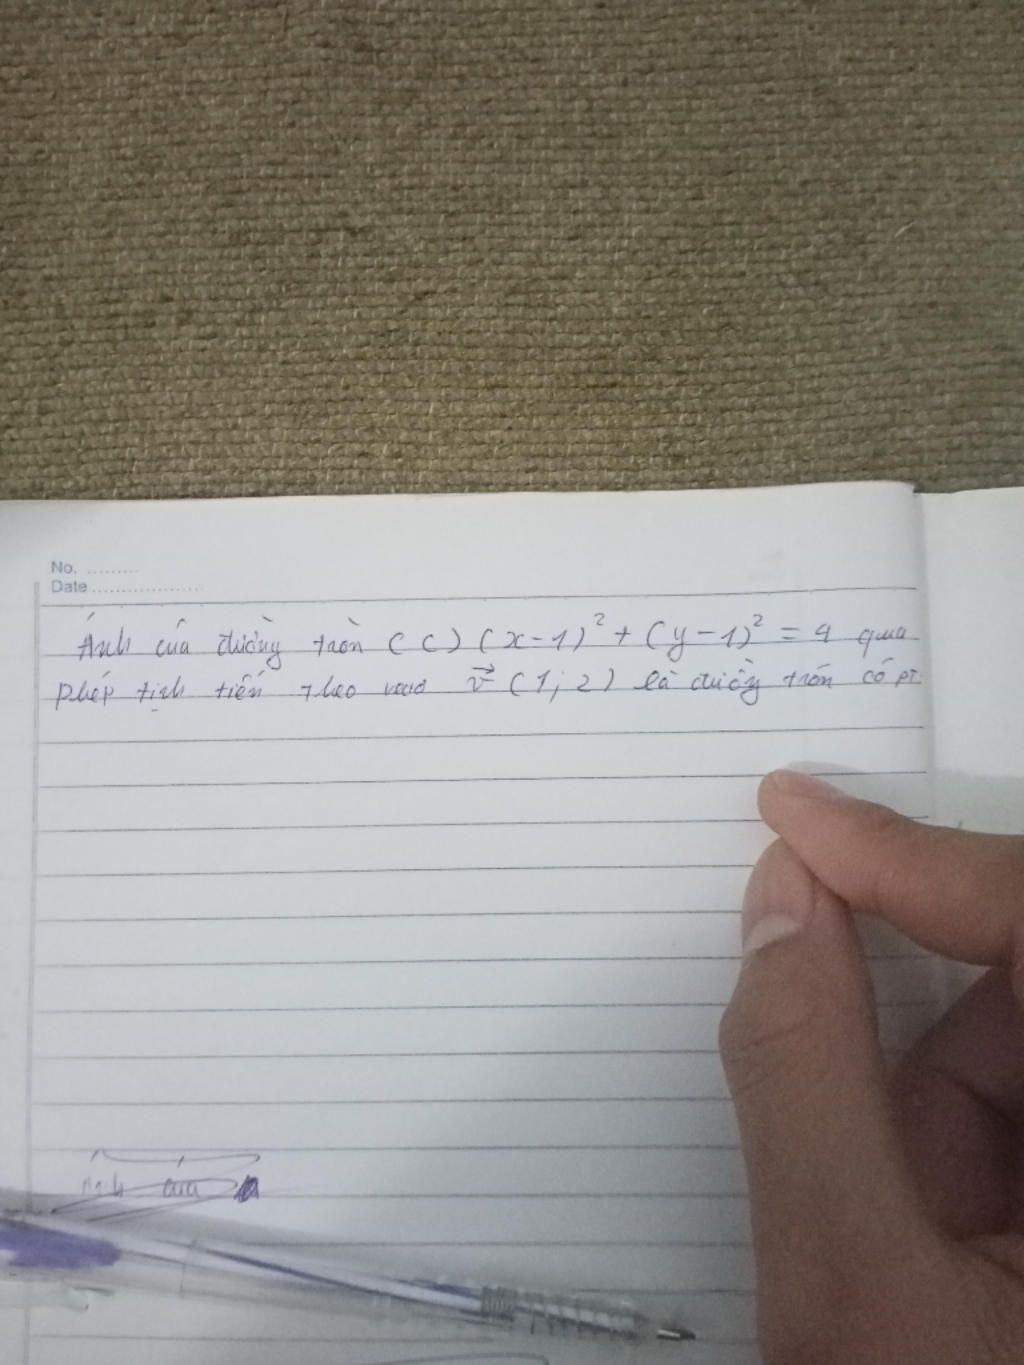 No. .........
Date ...................
Ảnh của đường tròn (C) (x-1)² + (y-1)² = 4 qua
phép tịnh tiến theo vectơ v⃗ (1; 2) là đường tròn có pt
Ảnh của